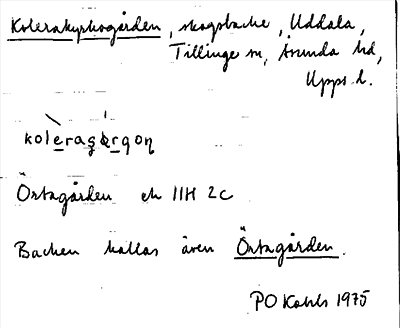 Kolerakyrkogården, skogsbacke, Uddala,
Tillinge sn, Åsunda hd,
Upps. l.
Örtagården ek 11H 2c
Backen kallas även Örtagården.
PO Kahls 1975